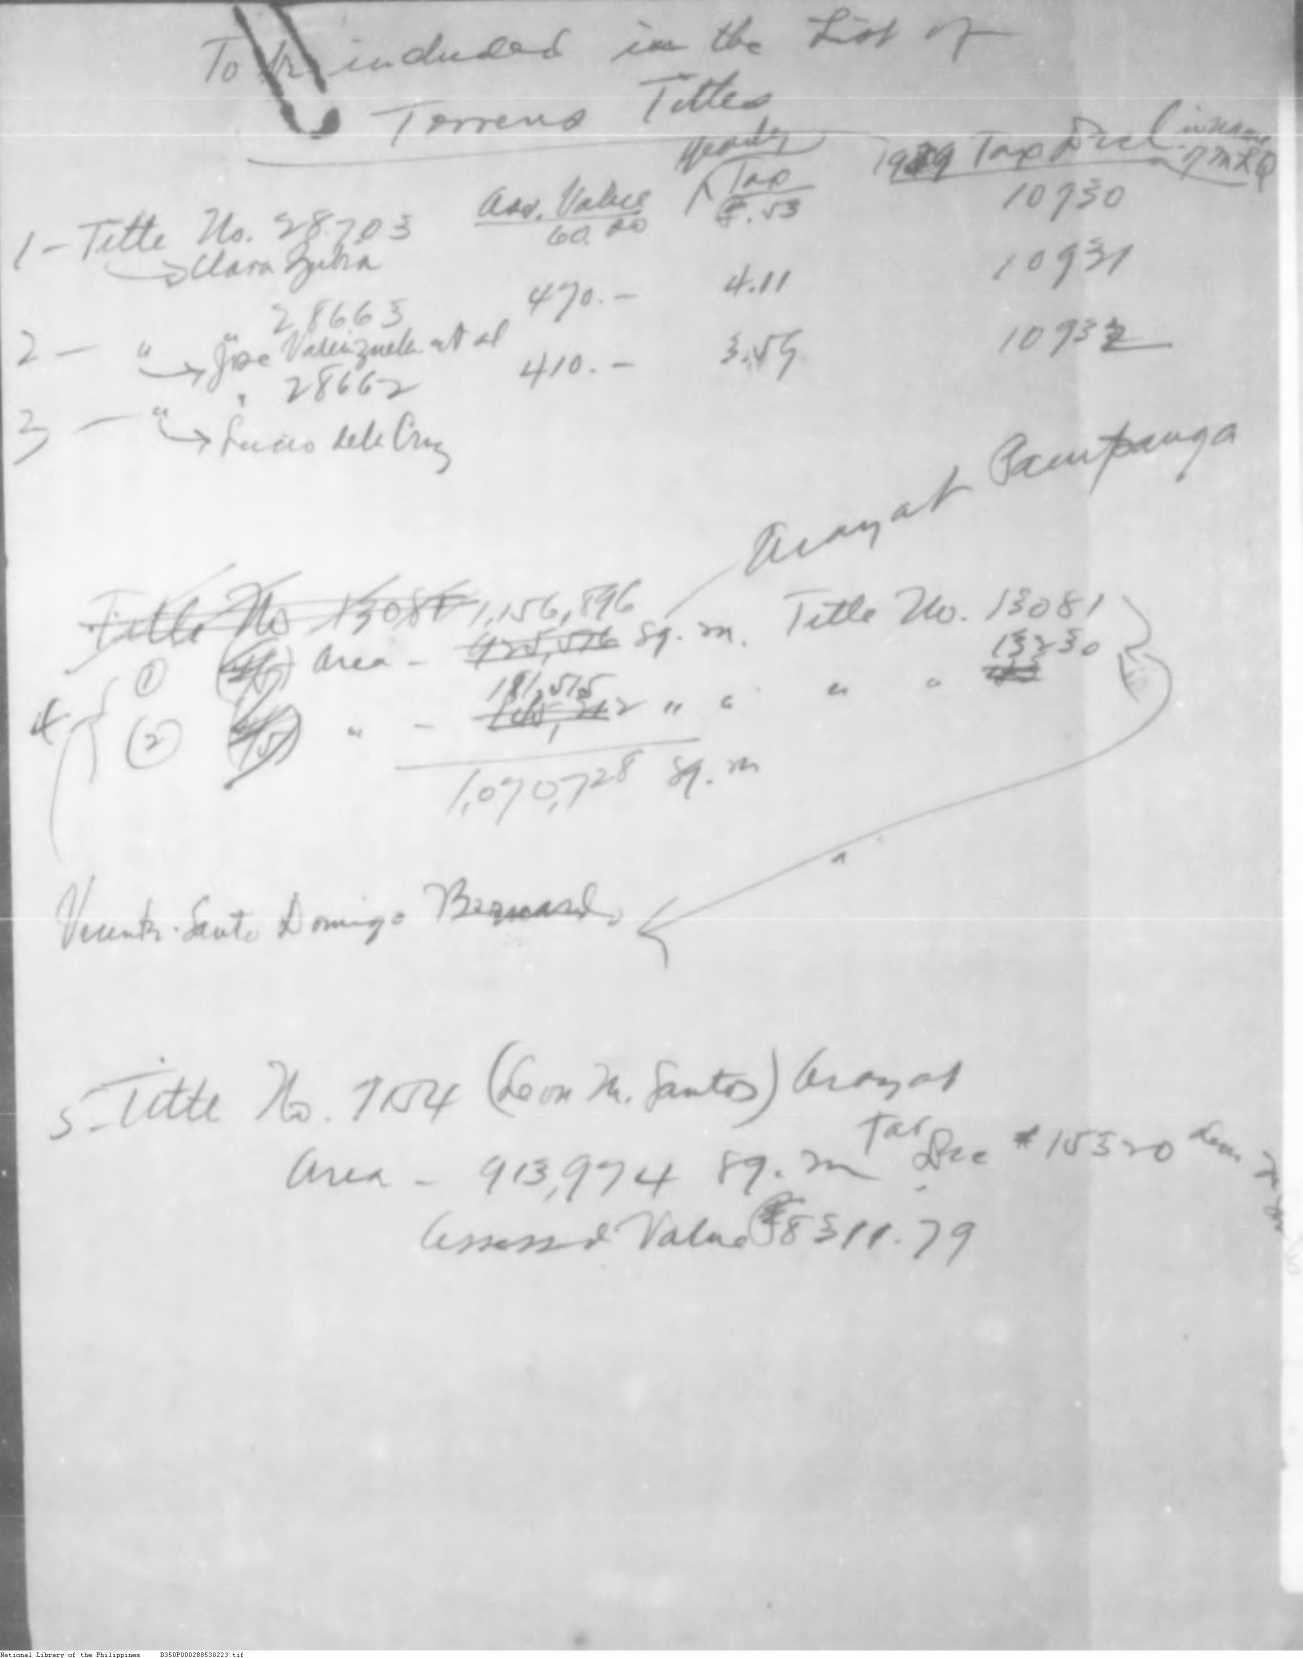 To be included in the List of
Torrens Titles
Ass. Value Yearly Tax 1939 Tax Decl. in name of MLQ
1 - Title No. 28703 60.00 ₱.53 10930
Clara Zubia
2 - " " 28663 470.- 4.11 10931
Jose Valenzuela et al
3 - " " 28662 410.- 3.59 10932
Lucio dela Cruz
Arayat Pampanga
Title No 13081
4 (1) Area - 925,576 1,156,896 sq. m. Title No. 13081
(2) " - 181,515 " " " " 13230
1,070,728 sq. m
Vicente Santo Domingo Bernardo
5 - Title No. 7154 (Leon M. Santos) Arayat
Area - 913,974 sq. m Tax Dec #15320
Assessed Value ₱8311.79
National Library of the Philippines D350P000288530223.tif